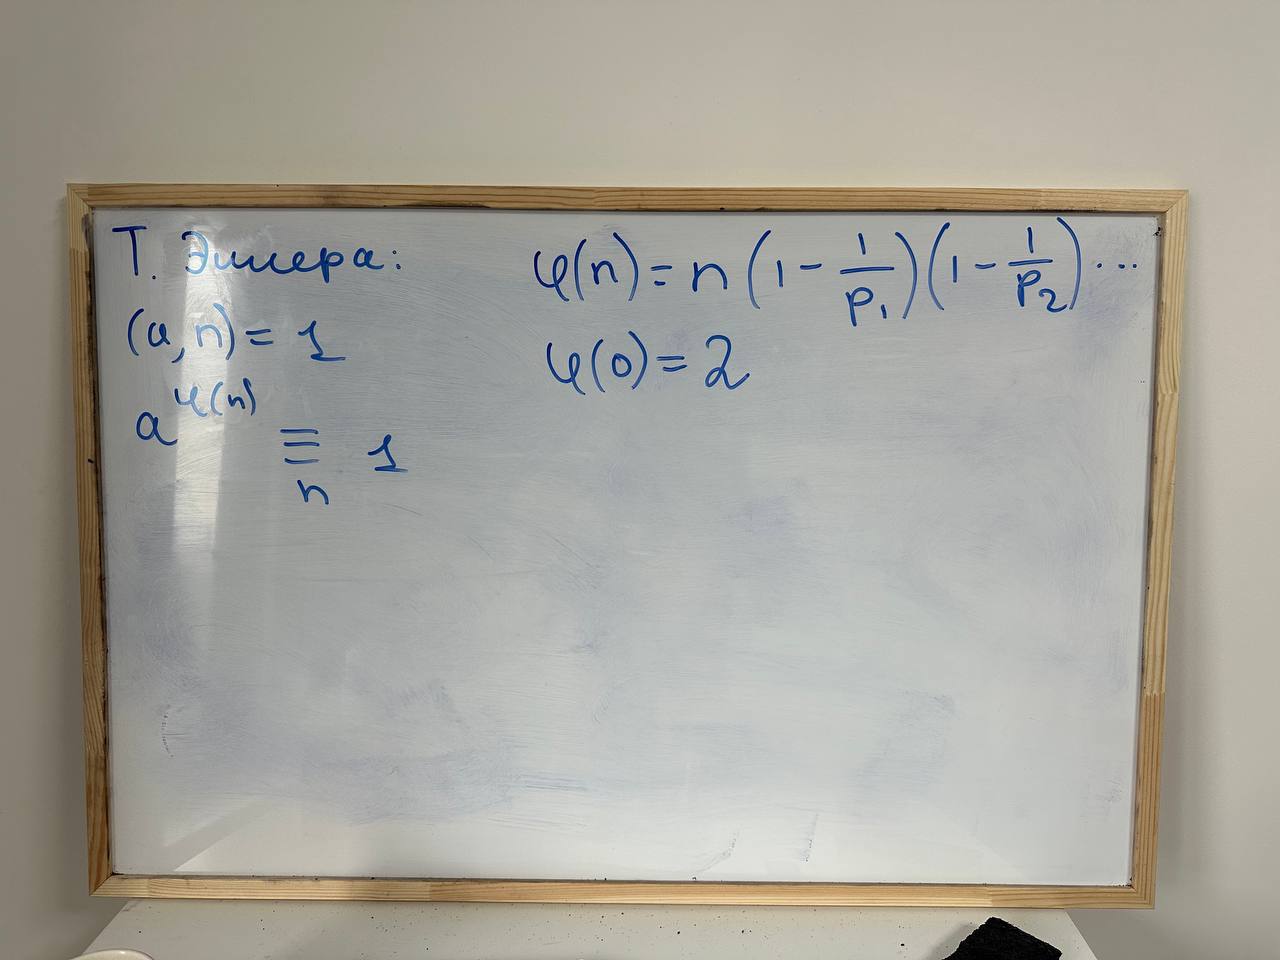 Т. Эйлера:
(a, n) = 1
a^φ(n) ≡ 1
n
φ(n) = n (1 - 1/p₁) (1 - 1/p₂) ...
φ(0) = 2